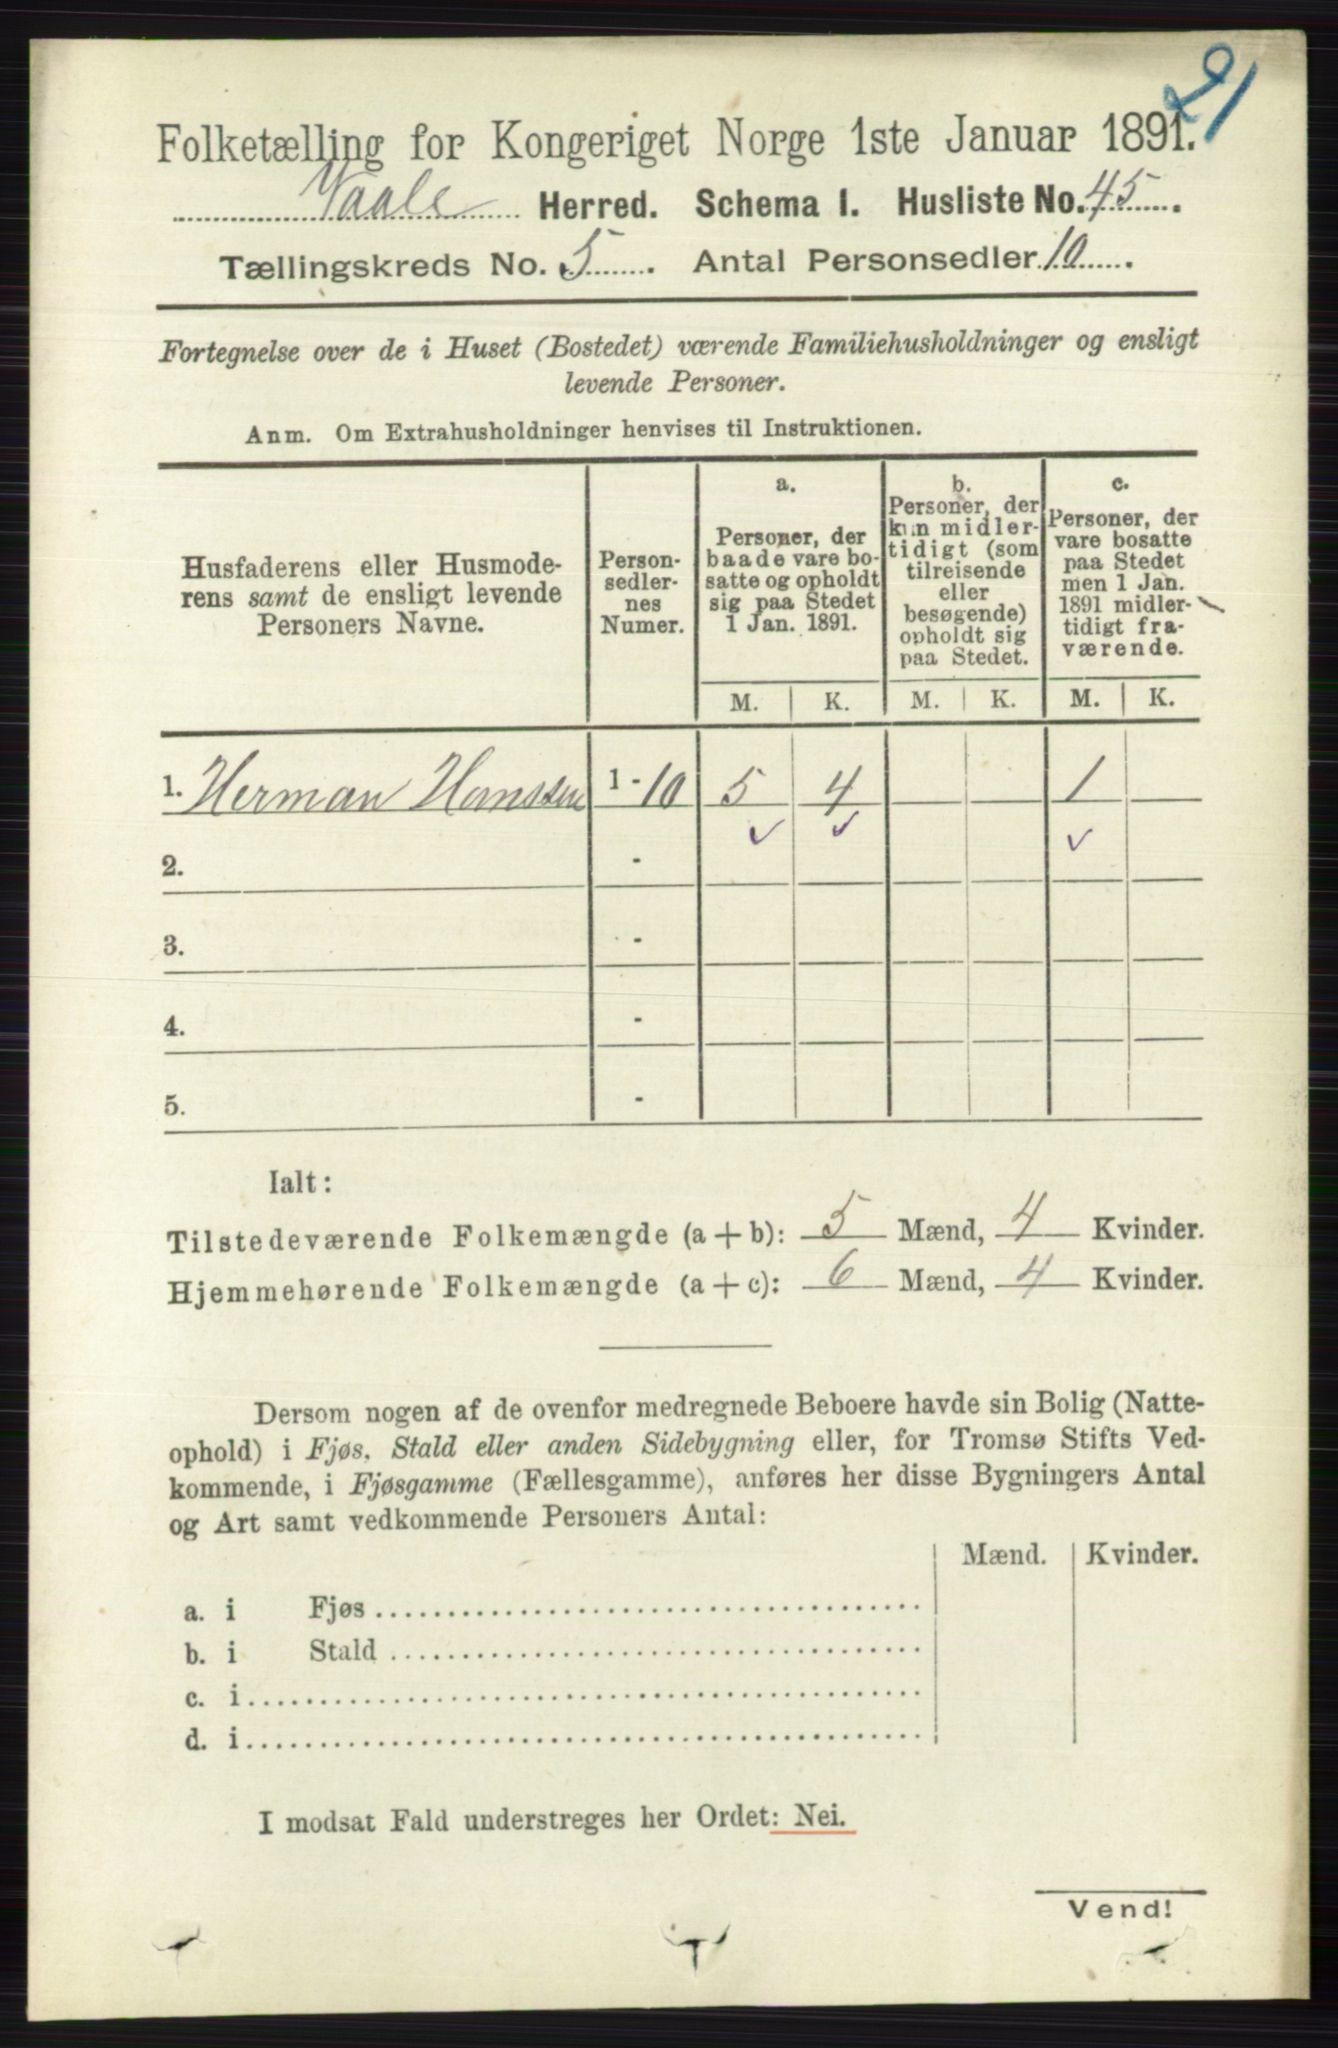 21
Folketælling for Kongeriget Norge 1ste Januar 1891.
Vaale Herred. Schema 1. Husliste No. 45.
Tællingskreds No. 5. Antal Personsedler 10.
Fortegnelse over de i Huset (Bostedet) værende Familiehusholdninger og ensligt
levende Personer.
Anm. Om Extrahusholdninger henvises til Instruktionen.
Husfaderens eller Husmode-
rens samt de ensligt levende
Personers Navne.
Person-
sedler-
nes
Numer.
a.
Personer, der
baade vare bo-
satte og opholdt
sig paa Stedet
1 Jan. 1891.
b.
Personer, der
kun midler-
tidigt (som
tilreisende
eller
besøgende)
opholdt sig
paa Stedet.
c.
Personer, der
vare bosatte
paa Stedet
men 1 Jan.
1891 midler-
tidigt fra-
værende.
M. K. M. K. M. K.
1. Herman Hanssen 1 - 10 5 4 1
2. -
3. -
4. -
5. -
Ialt:
Tilstedeværende Folkemængde (a + b): 5 Mænd, 4 Kvinder.
Hjemmehørende Folkemængde (a + c): 6 Mænd, 4 Kvinder.
Dersom nogen af de ovenfor medregnede Beboere havde sin Bolig (Natte-
ophold) i Fjøs, Stald eller anden Sidebygning eller, for Tromsø Stifts Ved-
kommende, i Fjøsgamme (Fællesgamme), anføres her disse Bygningers Antal
og Art samt vedkommende Personers Antal:
Mænd. Kvinder.
a. i Fjøs
b. i Stald
c. i
d. i
I modsat Fald understreges her Ordet: Nei.
Vend!